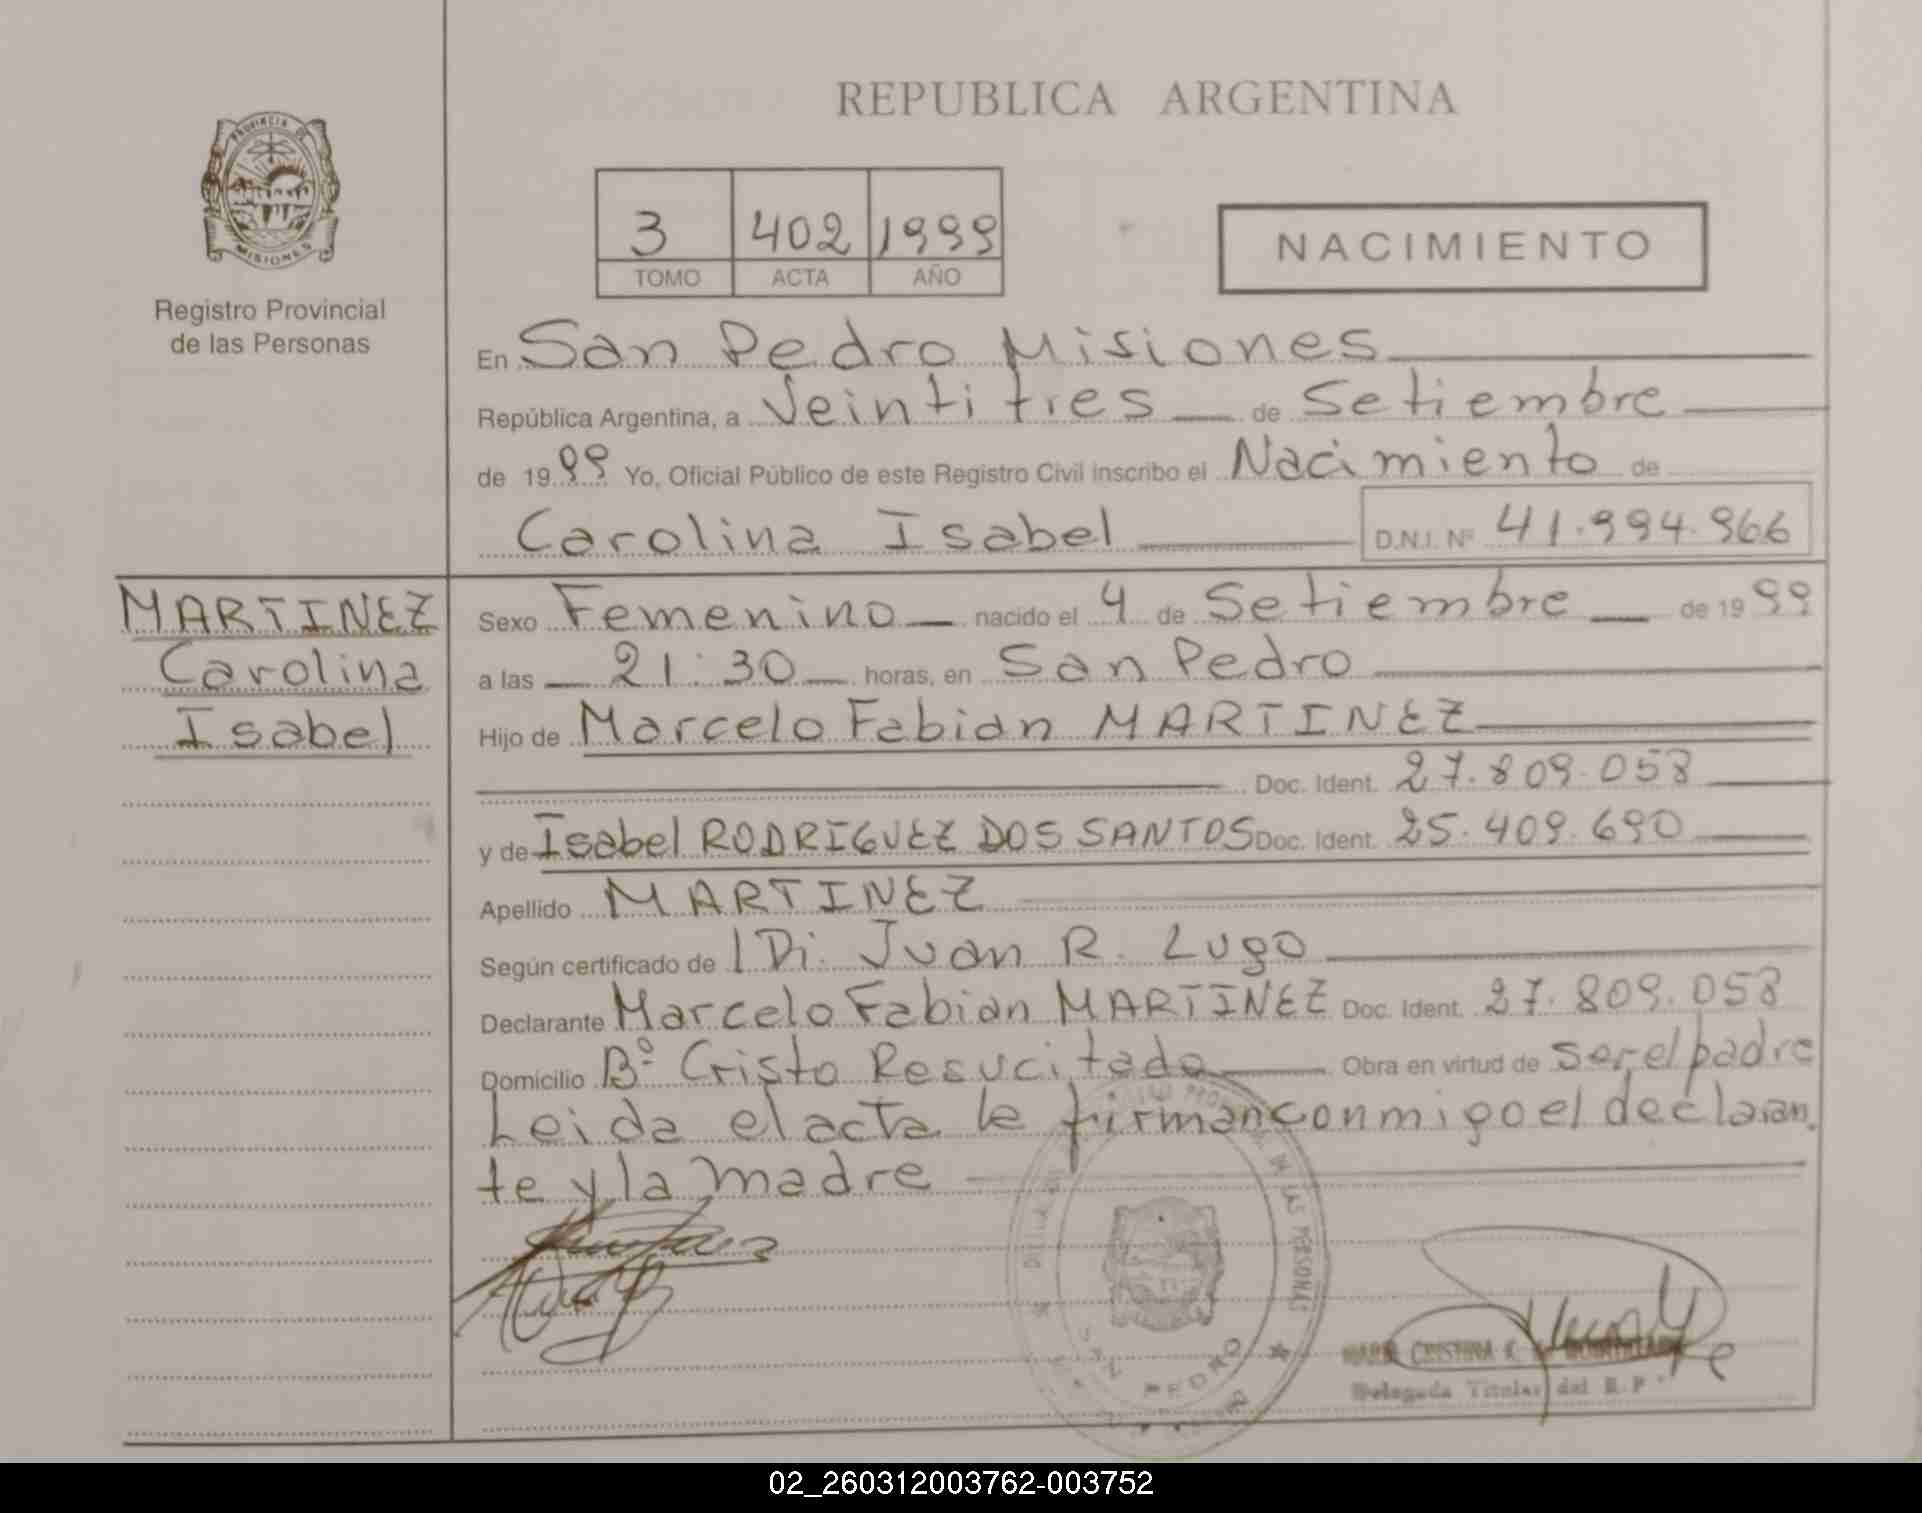 REPUBLICA ARGENTINA
PROVINCIA DE
MISIONES
Registro Provincial
de las Personas
3 402 1999
TOMO ACTA AÑO
NACIMIENTO
En San Pedro Misiones
República Argentina, a Veintitres de Setiembre
de 1999 Yo, Oficial Público de este Registro Civil inscribo el Nacimiento de
Carolina Isabel D.N.I. Nº 41.994.966
MARTINEZ
Carolina
Isabel
Sexo Femenino nacido el 4 de Setiembre de 1999
a las 21:30 horas, en San Pedro
Hijo de Marcelo Fabian MARTINEZ
Doc. Ident. 27.809.058
y de Isabel RODRIGUEZ DOS SANTOS Doc. Ident. 25.409.690
Apellido MARTINEZ
Según certificado de Juan R. Lugo
Declarante Marcelo Fabian MARTINEZ Doc. Ident. 27.809.058
Domicilio Bº Cristo Resucitado Obra en virtud de ser el padre
Leida el acta la firman conmigo el declaran
te y la madre
DE LAS PERSONAS
SAN PEDRO
CRISTINA
Delegada Titular del R.P
02_260312003762-003752